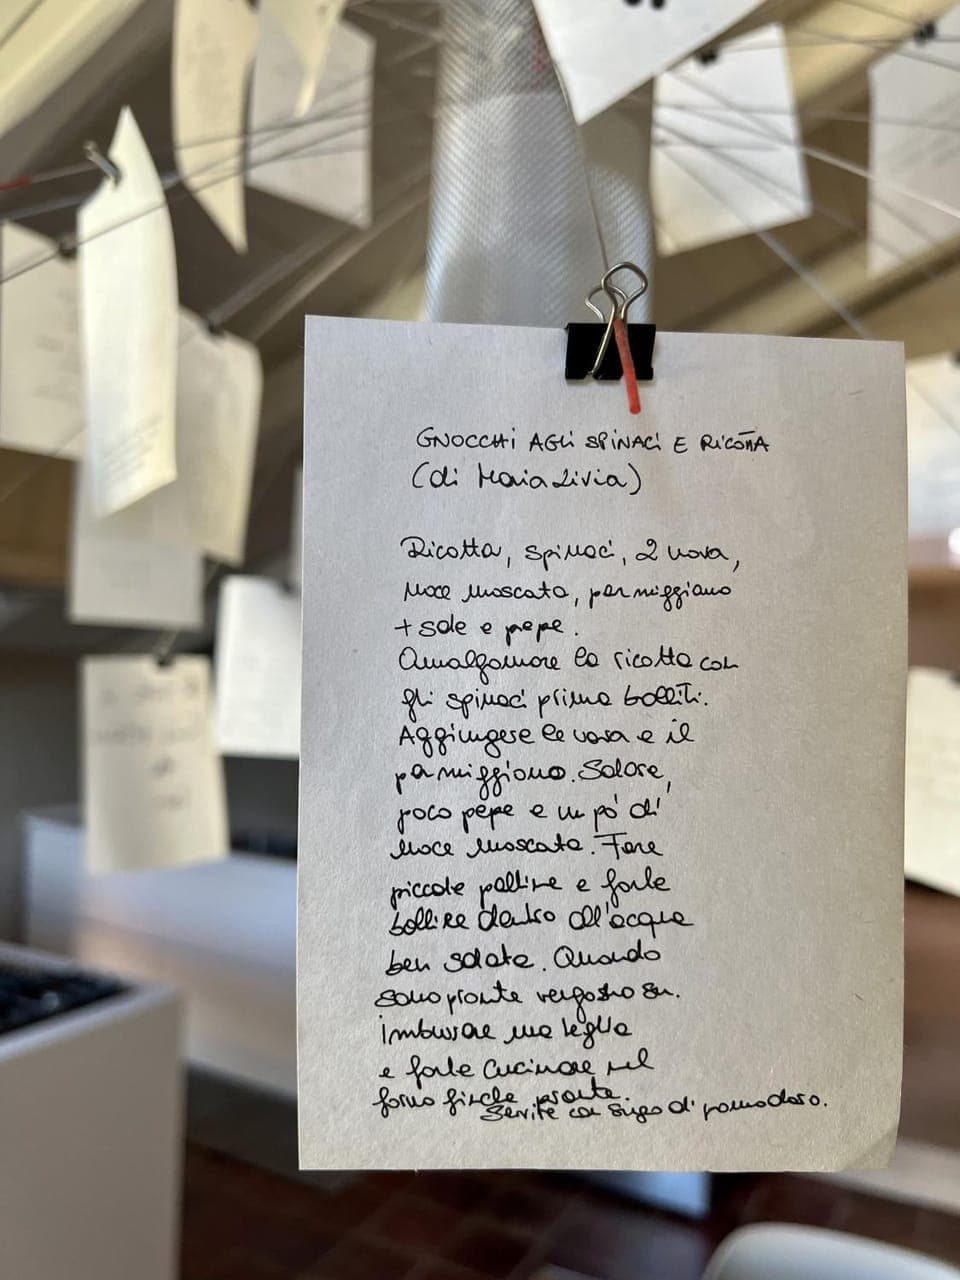 GNOCCHI AGLI SPINACI E RICOTTA
(di Maria Livia)
Ricotta, spinaci, 2 uova,
noce moscata, parmiggiano
+ sale e pepe.
Amalgamare la ricotta con
gli spinaci prima bolliti.
Aggiungere le uova e il
parmiggiano. Salare,
poco pepe e un pò di
noce moscata. Fare
piccole palline e farle
bollire dentro all'acqua
ben salata. Quando
sono pronte vengono su.
imburrare una teglia
e farle cucinare nel
forno finche pronte.
Servite con sugo di pomodoro.